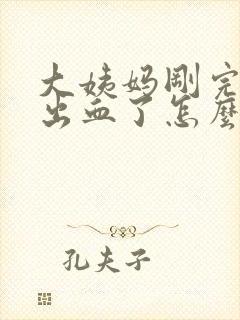 大姨妈刚完
出血了怎麼
孔夫子